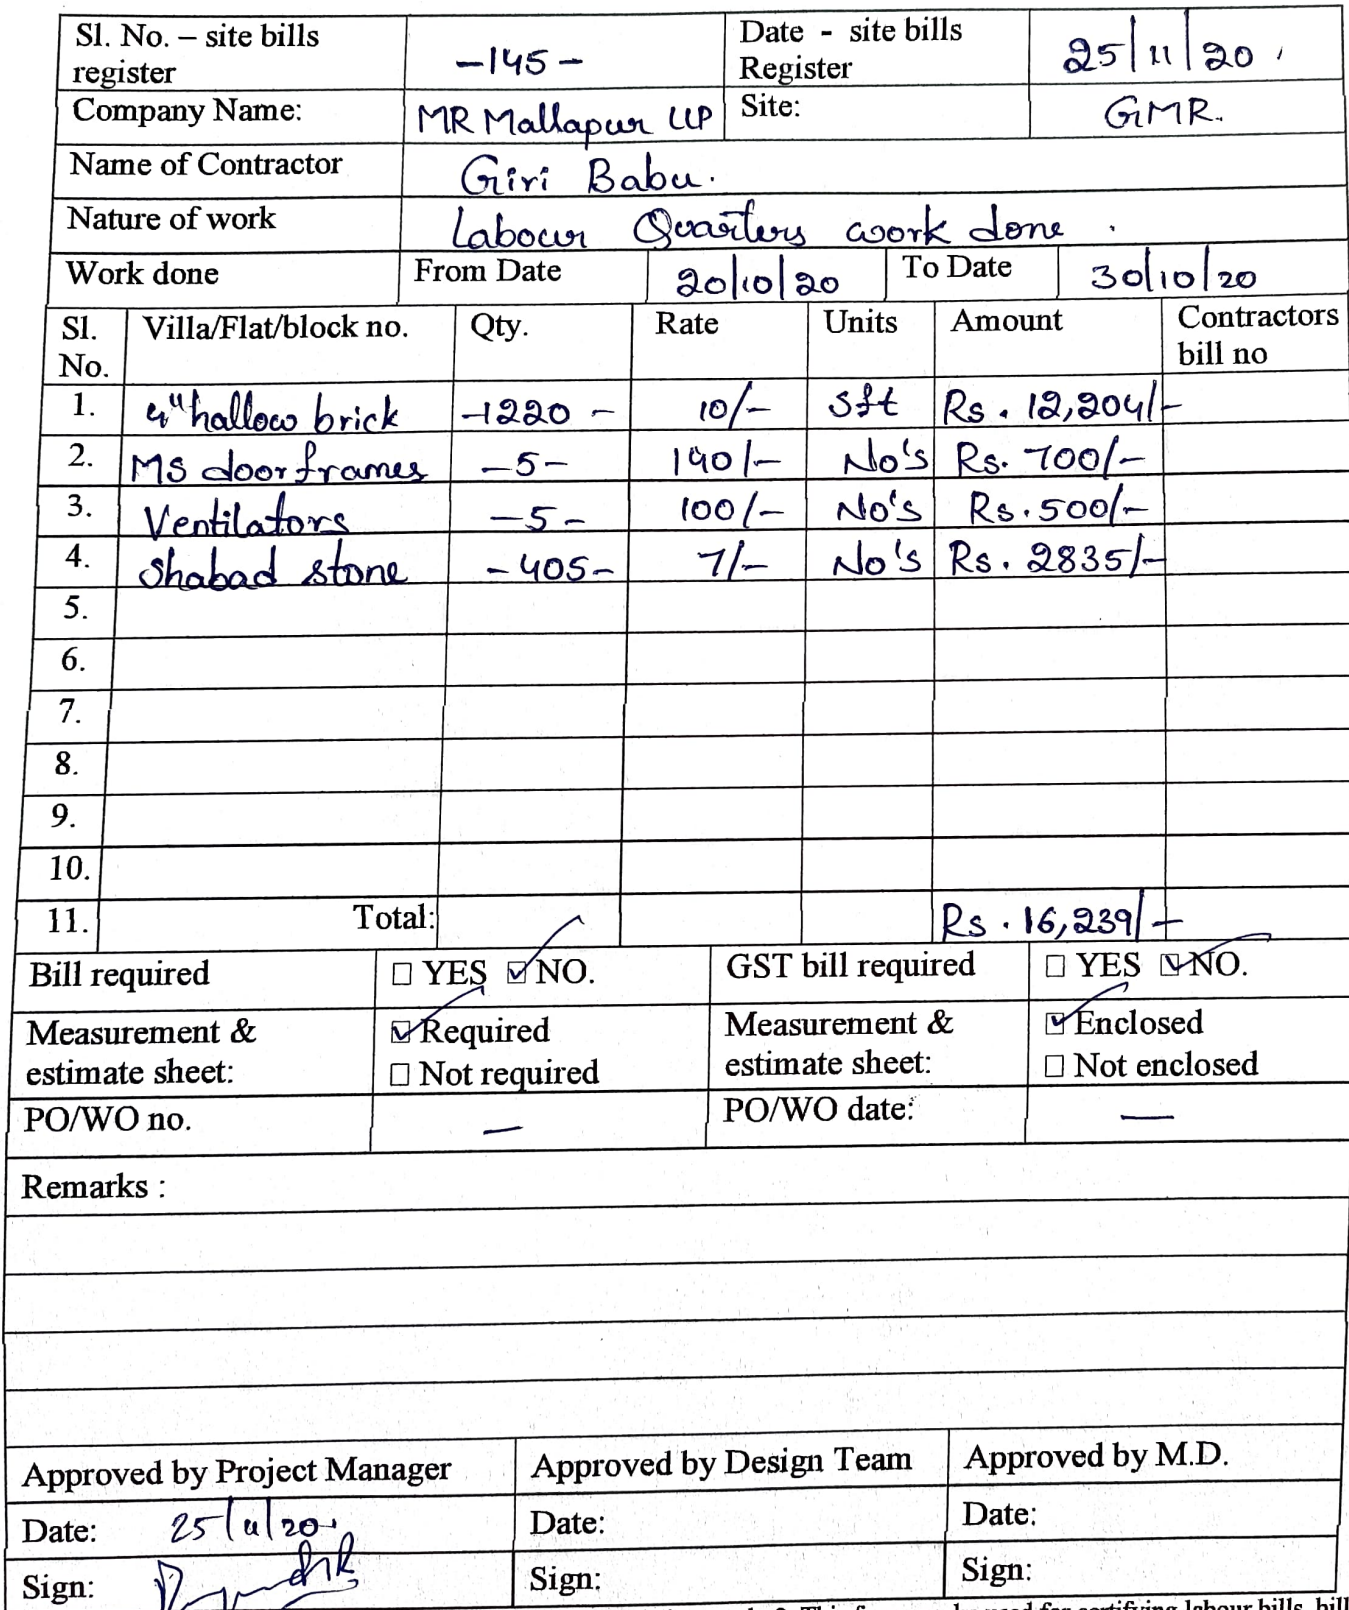 Sl. No. – site bills register -145- Date - site bills Register 25/11/20.
Company Name: MR Mallapur LLP Site: GMR.
Name of Contractor Giri Babu.
Nature of work Labour Quarters work done.
Work done From Date 20/10/20 To Date 30/10/20
Sl. No. Villa/Flat/block no. Qty. Rate Units Amount Contractors bill no
1. 4" hallow brick -1220- 10/- Sft Rs. 12,204/-
2. MS doorframes -5- 140/- No's Rs. 700/-
3. Ventilators -5- 100/- No's Rs. 500/-
4. Shabad stone -405- 7/- No's Rs. 2835/-
5.
6.
7.
8.
9.
10.
11. Total: Rs. 16,239/-
Bill required ☐ YES ☑ NO. GST bill required ☐ YES ☑ NO.
Measurement & estimate sheet: ☑ Required ☐ Not required Measurement & estimate sheet: ☑ Enclosed ☐ Not enclosed
PO/WO no. — PO/WO date: —
Remarks :
Approved by Project Manager Approved by Design Team Approved by M.D.
Date: 25/11/20. Date: Date:
Sign: Sign: Sign: